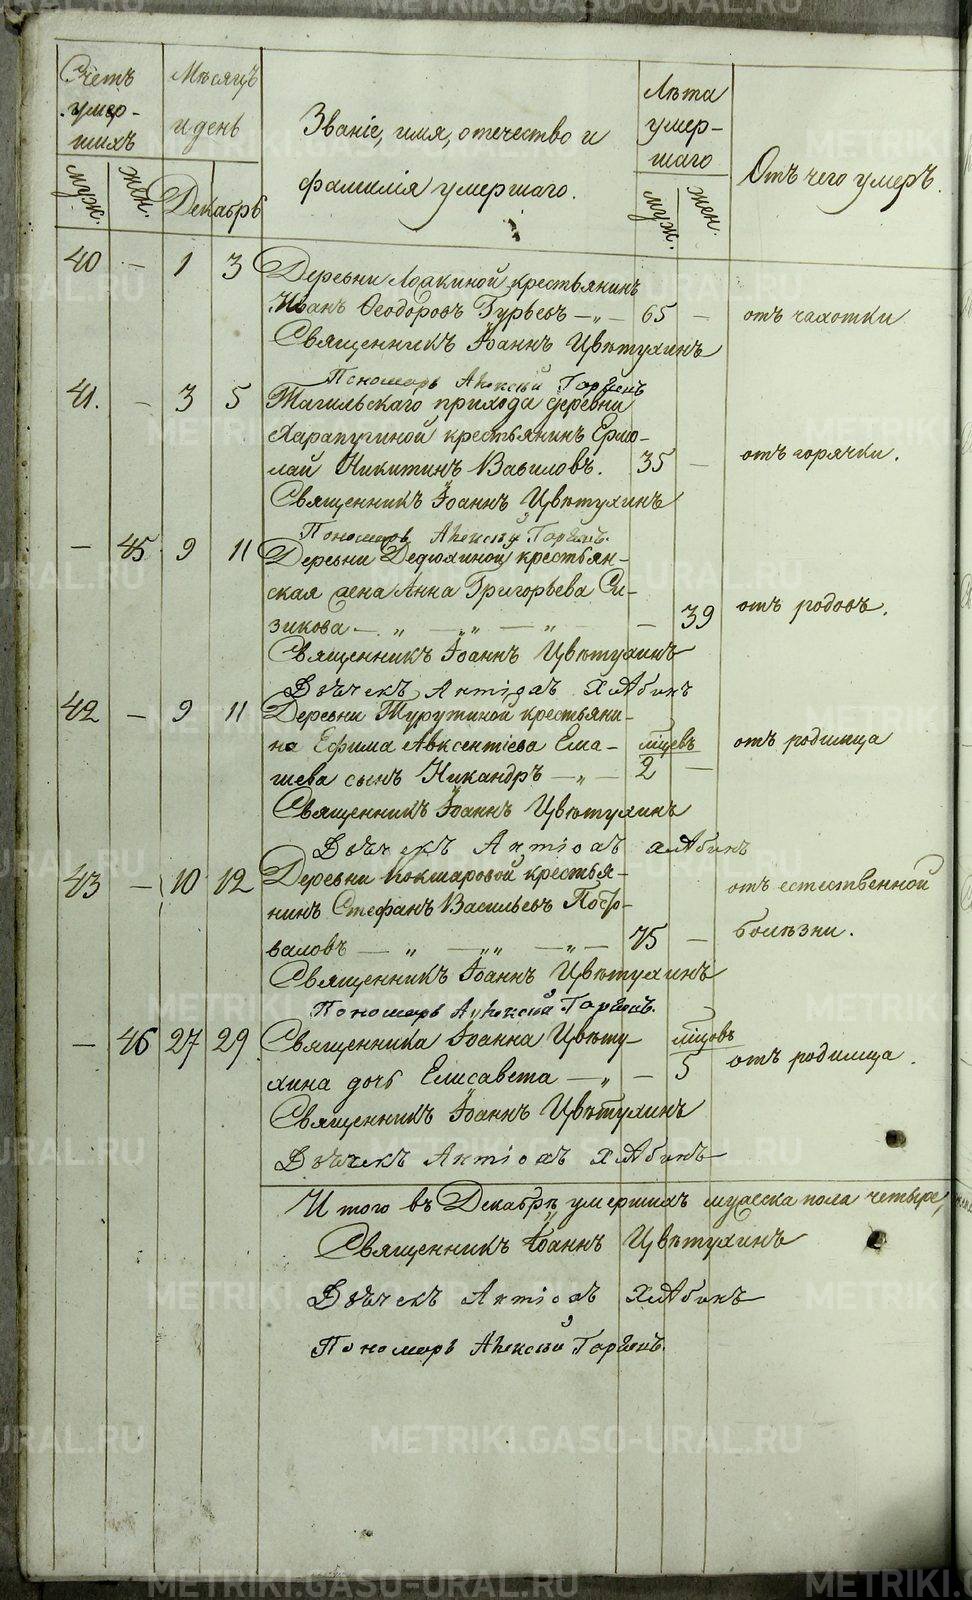 Счетъ умер-шихъ
Мѣсяцъ и день
Званіе, имя, отечество и
фамилія умершаго.
Лѣта умер-шаго
Отъ чего умеръ.
муж. жен. Декабрь муж. жен.
40 — 1 3 Деревни Лоакиной крестьянинъ
Иванъ Ѳеодоровъ Гурьевъ — „ — 65 — отъ чахотки
Священникъ Іоаннъ Цвѣтухинъ
Пономарь Алексѣй
41. — 3 5 Тагильскаго прихода деревни
Харапугиной крестьянинъ Ермо-
лай Никитинъ Вавиловъ. 35 — отъ горячки.
Священникъ Іоаннъ Цвѣтухинъ
Пономарь Алексѣй
— 45. 9 11 Деревни Дедюхиной крестьян-
ская жена Анна Григорьева Си-
зикова — „ — „ — „ — 39 отъ родовъ.
Священникъ Іоаннъ Цвѣтухинъ
Дьячекъ Антіохъ Хлабинъ
42 — 9 11 Деревни Турутиной крестьяни-
на Ефима Авксентіева Ела- мцевъ отъ родимца
шева сынъ Никандръ — „ — 2 —
Священникъ Іоаннъ Цвѣтухинъ
Дьячекъ Антіохъ Хлабинъ
43 — 10 12 Деревни Кокшаровой крестья- отъ естественной
нинъ Стефанъ Васильевъ
валовъ — „ — „ — „ — 75 — болѣзни.
Священникъ Іоаннъ Цвѣтухинъ
Пономарь Алексѣй
— 46 27 29. Священника Іоанна Цвѣту- мцовъ
хина дочь Елисавета — „ — 5 отъ родимца.
Священникъ Іоаннъ Цвѣтухинъ
Дьячекъ Антіохъ Хлабинъ
И того въ Декабрѣ умершихъ мужеска пола четыре,
Священникъ Іоаннъ Цвѣтухинъ
Дьячекъ Антіохъ Хлабинъ
Пономарь Алексѣй
METRIKI.GASO-URAL.RU